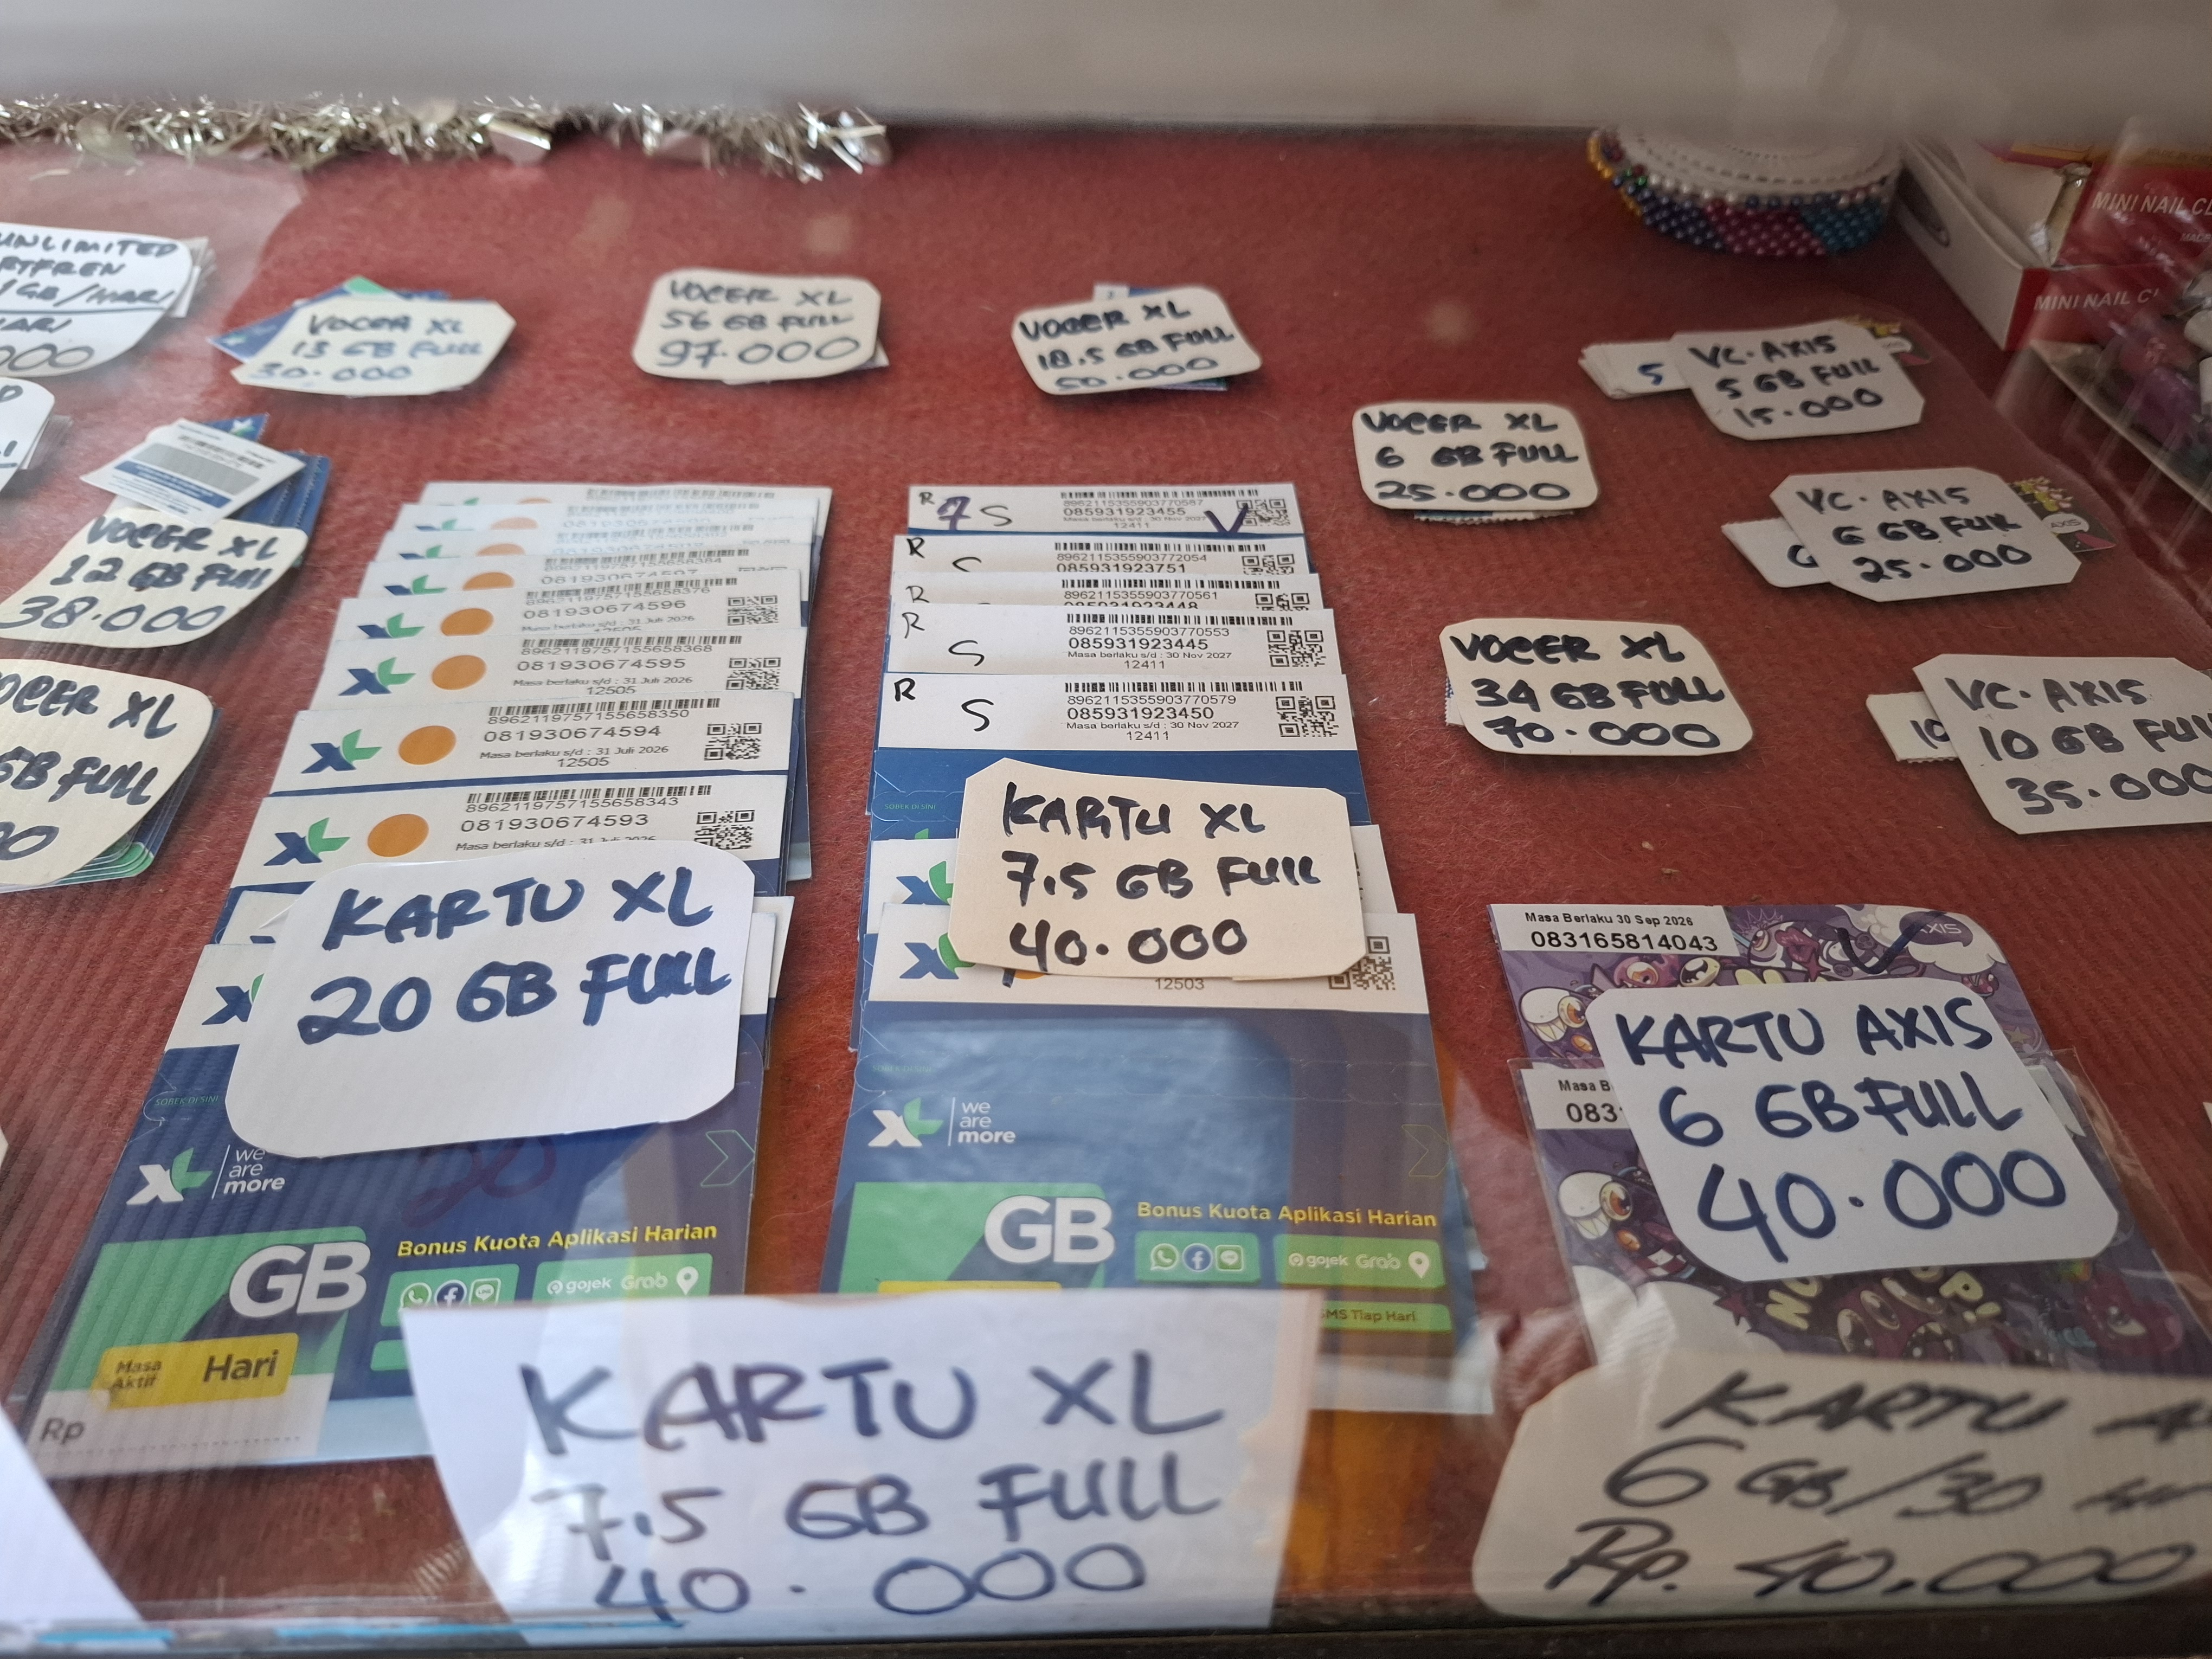 UNLIMITED
1GB/HARI
VOCER XL
13 GB FULL
30.000
VOCER XL
56 GB FULL
97.000
VOCER XL
18.5 GB FULL
50.000
VC. AXIS
5 GB FULL
15.000
5
MINI NAIL
MINI NAIL
VOCER XL
6 GB FULL
25.000
VC. AXIS
6 GB FULL
25.000
AXIS
VOCER XL
12 GB FULL
38.000
VOCER XL
34 GB FULL
70.000
VC. AXIS
10 GB
35.000
10
XL
GB FULL
081930674597
8962119757155658376
081930674596
Masa berlaku s/d : 31 Juli 2026
8962119757155658368
081930674595
Masa berlaku s/d : 31 Juli 2026
12505
8962119757155658350
081930674594
Masa berlaku s/d : 31 Juli 2026
12505
XL
8962119757155658343
081930674593
Masa berlaku s/d : 31 Juli 2026
XL
R 7 S
8962115355903770587
085931923455
Masa berlaku s/d : 30 Nov 2027
12411
R S
8962115355903772054
085931923751
R
8962115355903770561
085931923448
R S
8962115355903770553
085931923445
Masa berlaku s/d : 30 Nov 2027
12411
R S
8962115355903770579
085931923450
Masa berlaku s/d : 30 Nov 2027
12411
SOBEK DI SINI
KARTU XL
7.5 GB FULL
40.000
12503
KARTU XL
20 GB FULL
SOBEK DI SINI
XL we are more
20
GB
Bonus Kuota Aplikasi Harian
gojek Grab
Masa Aktif Hari
Rp
SOBEK DI SINI
XL we are more
GB
Bonus Kuota Aplikasi Harian
gojek Grab
SMS Tiap Hari
Masa Berlaku 30 Sep 2026
083165814043
AXIS
Masa
083
KARTU AXIS
6 GB FULL
40.000
KARTU XL
7.5 GB FULL
40.000
KARTU
6 GB/30
Rp. 40.000